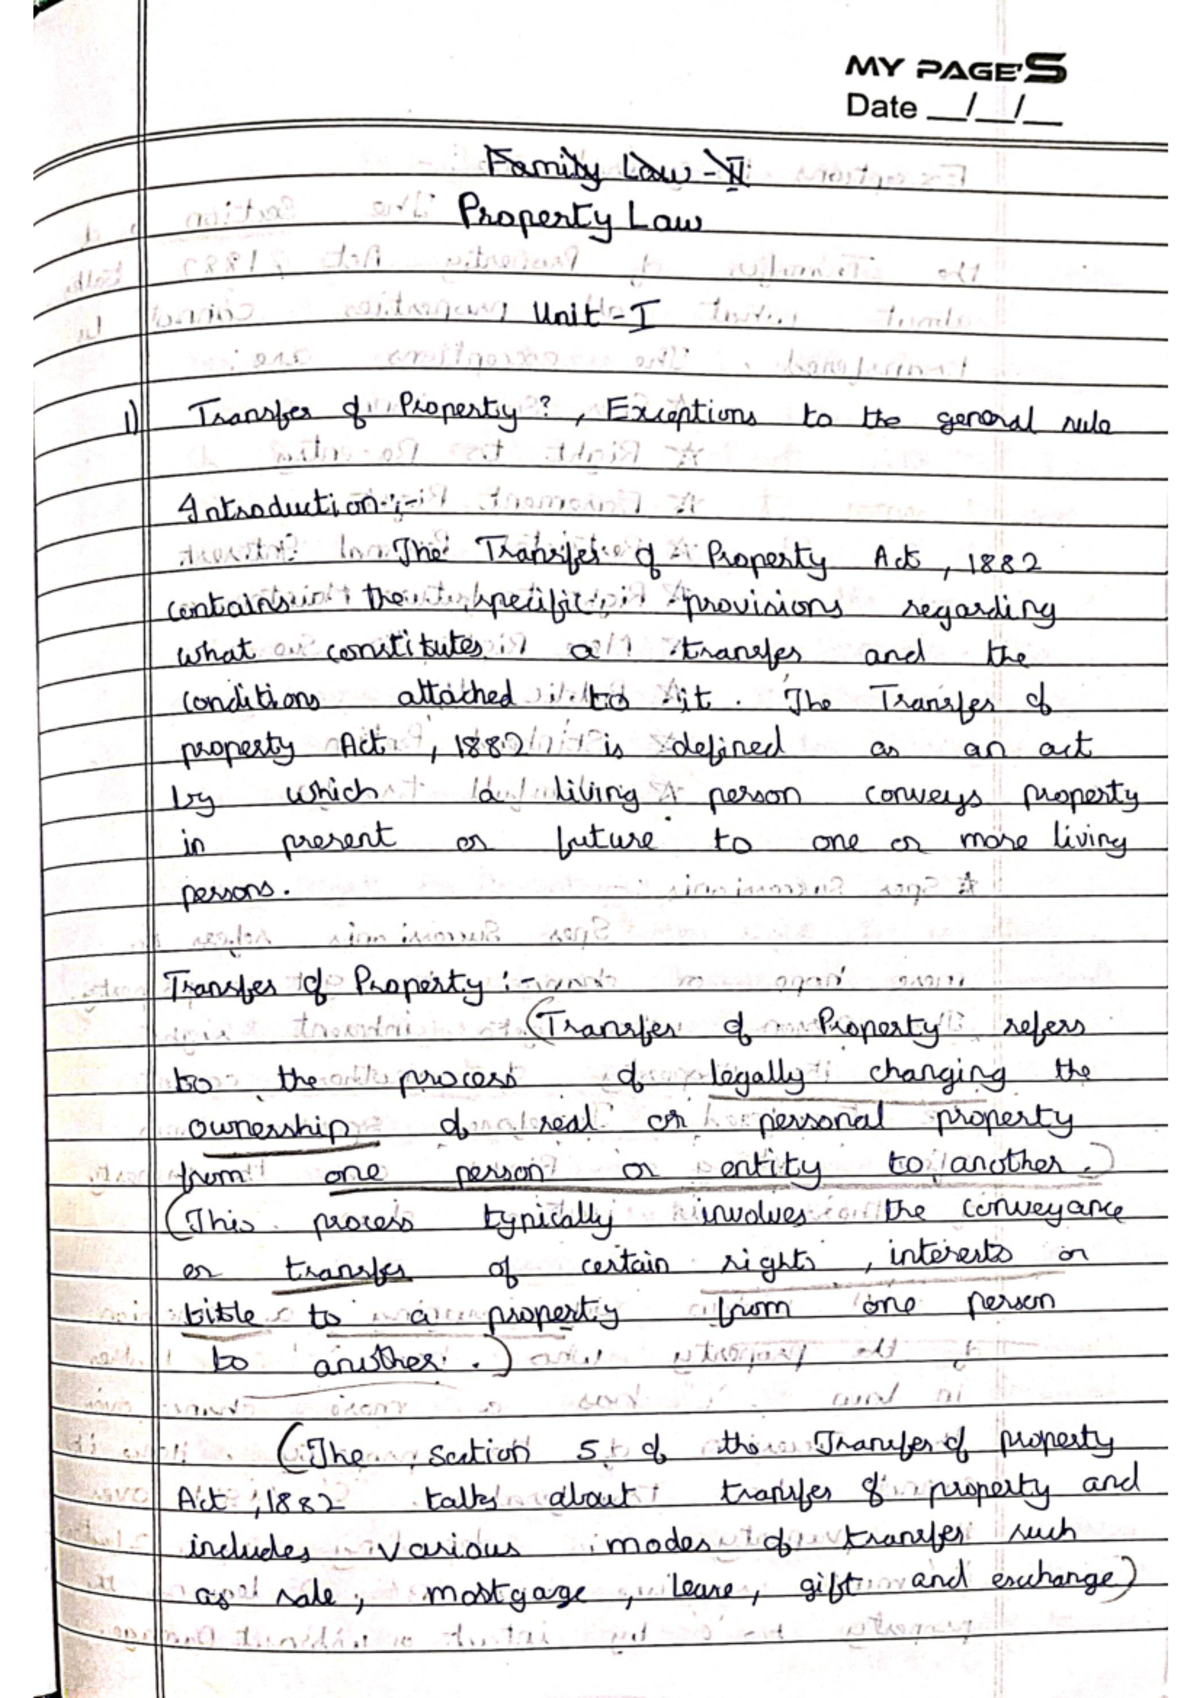 MY PAGE'S
Date __/__/__
Family Law - II
Property Law
Unit - I
1) Transfer of Property?, Exceptions to the general rule
Introduction :-
The Transfer of Property Act, 1882
contains the specific provisions regarding
what constitutes a transfer and the
conditions attached to it. The Transfer of
property Act, 1882 is defined as an act
by which a living person conveys property
in present or future to one or more living
persons.
Transfer of Property :-
(Transfer of Property refers
to the process of legally changing the
ownership of real or personal property
from one person or entity to another.)
(This process typically involves the conveyance
or transfer of certain rights, interests or
title to a property from one person
to another.)
(The Section 5 of the Transfer of property
Act, 1882 talks about transfer of property and
includes various modes of transfer such
as sale, mortgage, lease, gift and exchange)